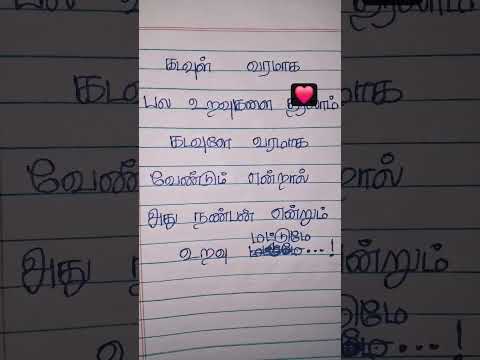 கடவுள் வரமாக
பல உறவுகளை தரலாம்
கடவுளே வரமாக
வேண்டும் என்றால்
அது நண்பன் என்றும்
உறவு மட்டுமே...!